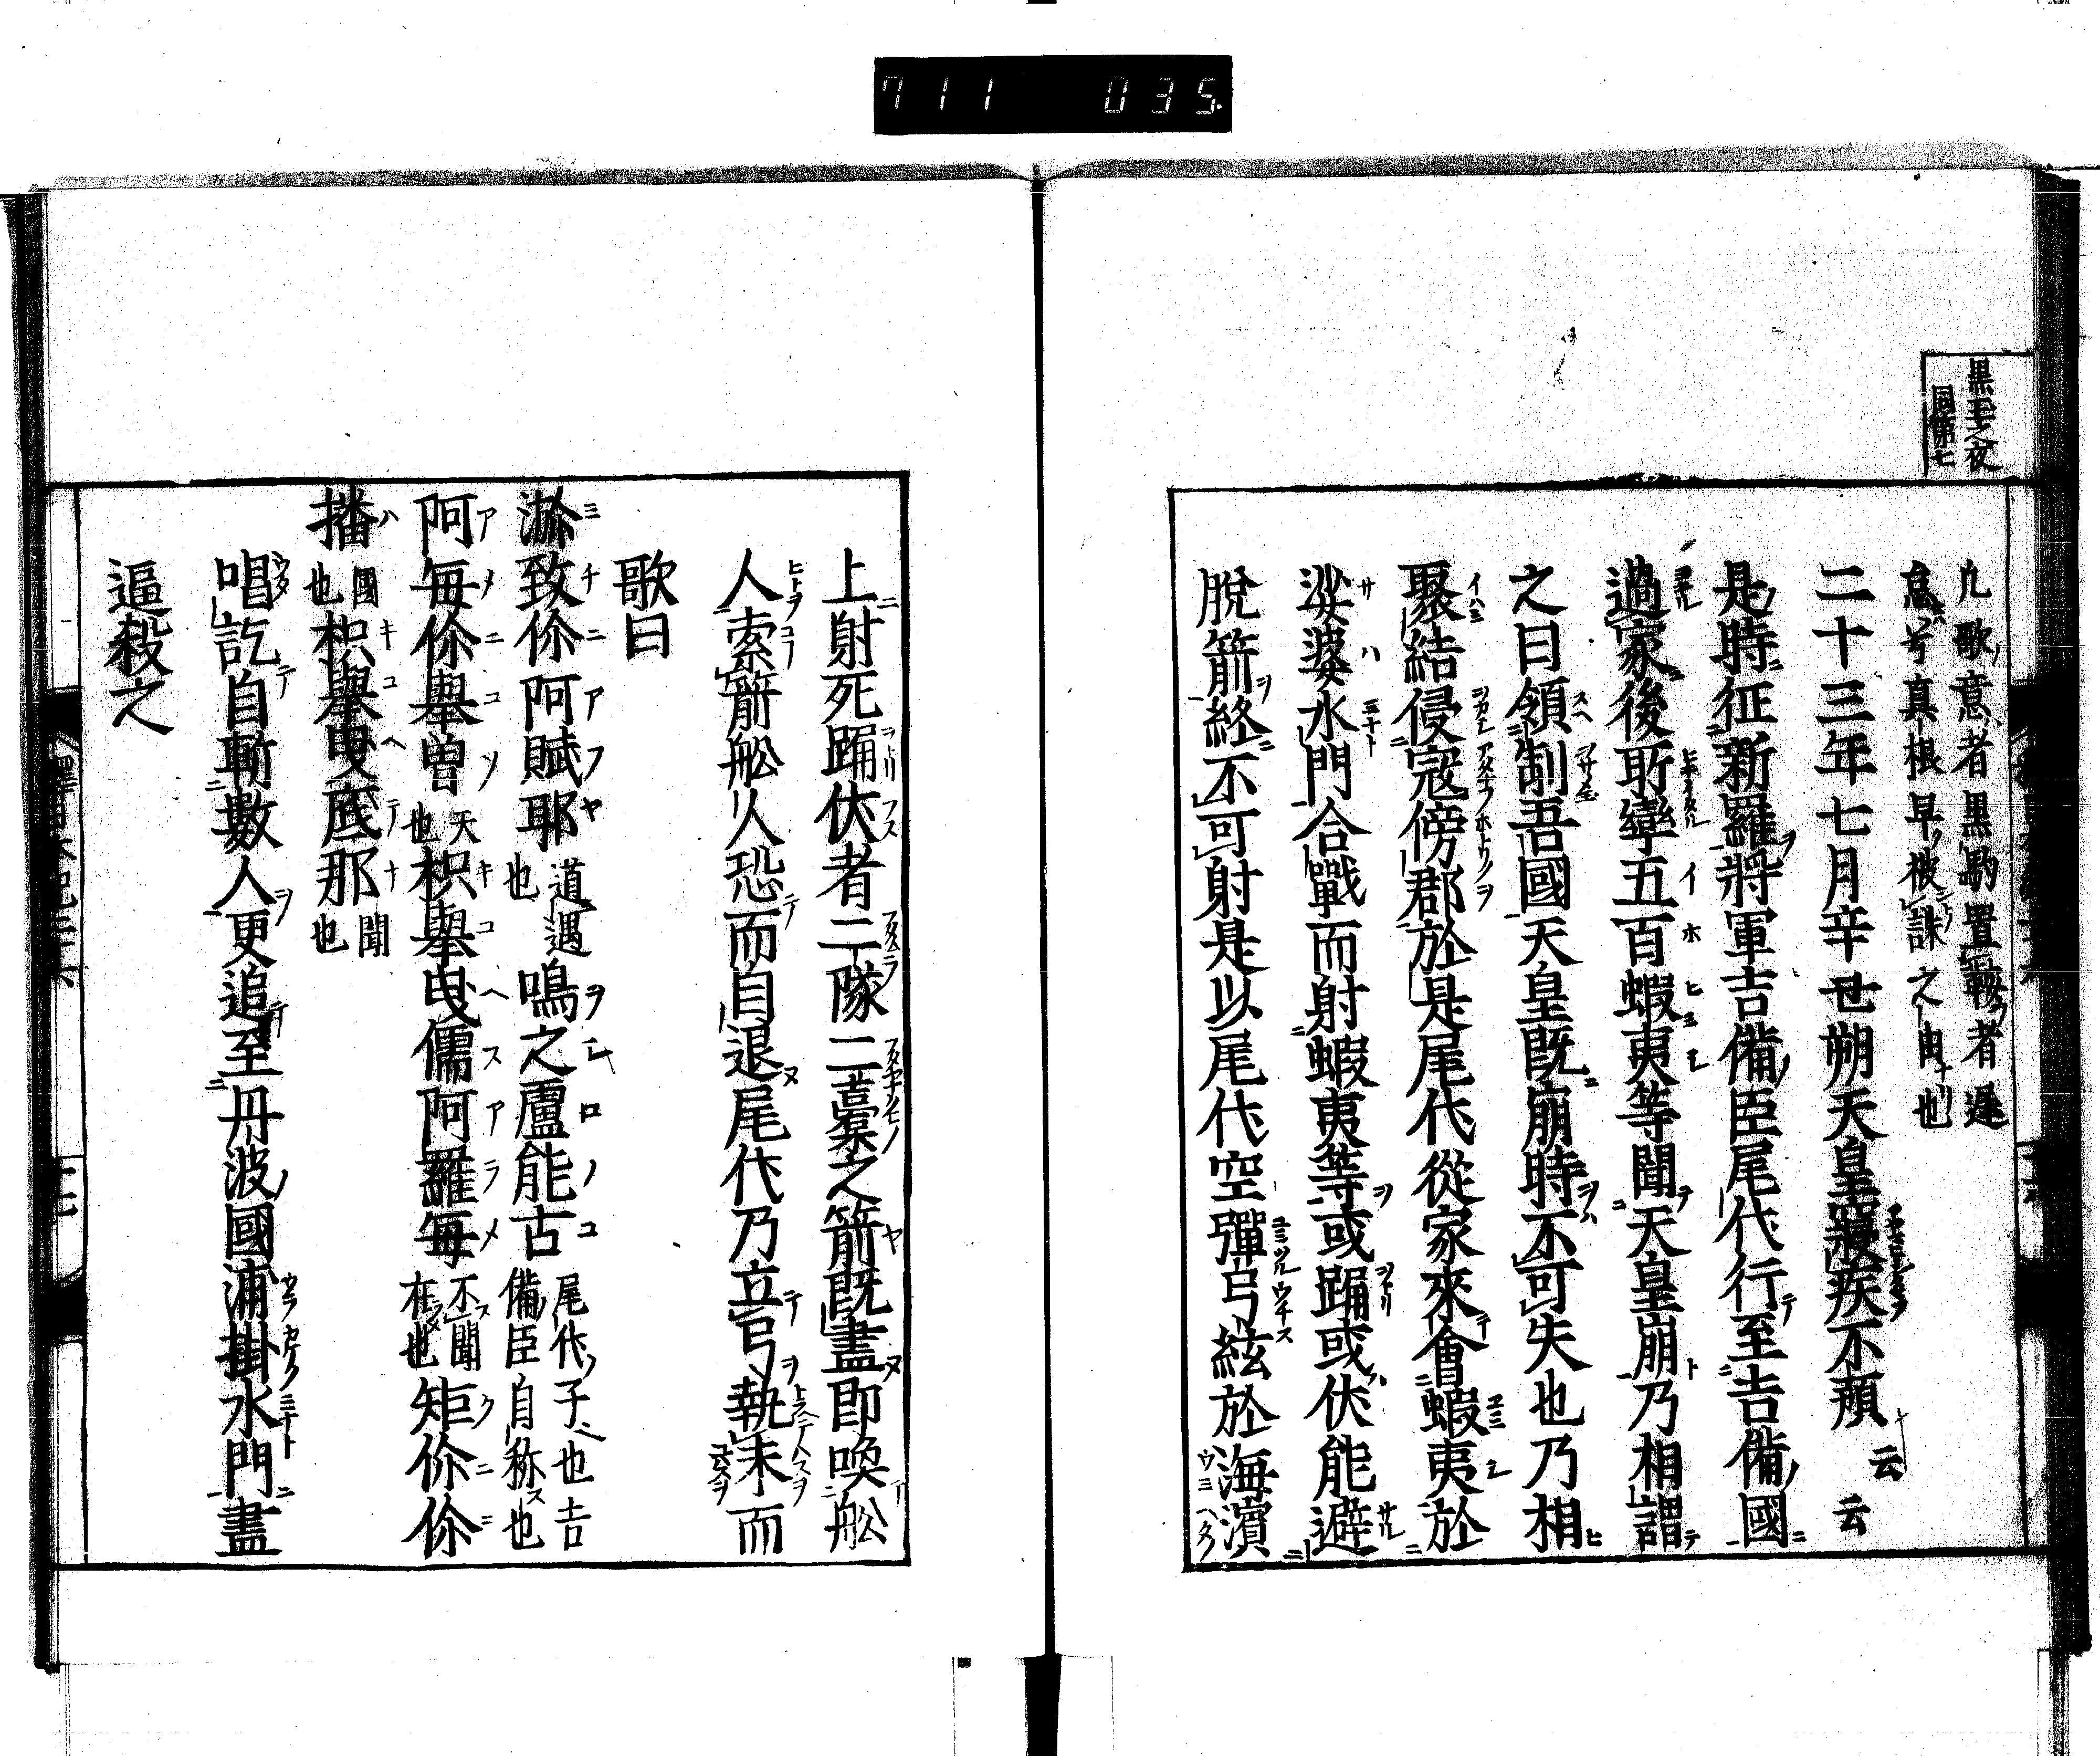 711 035
同第七
凢歌意者黒駒置鞍者遅
怠兮真根早被誅之由也
二十三年七月辛丑朔天皇寢疾不預云云
是時征新羅將軍吉備臣尾代行至吉備國
過家後所率五百蝦夷等聞天皇崩乃相謂
之曰領制吾國天皇既崩時不可失也乃相
聚結侵寇傍郡於是尾代從家來會蝦夷於
娑婆水門合戰而射蝦夷等或踊或伏能避
脫箭終不可射是以尾代空彈弓絃於海濱
上射死踊伏者二隊二櫜之箭既盡即喚舩
人索箭舩人恐而自退尾代乃立弓執末而
歌曰
瀰致你阿賦耶道遇也鳴之廬能古尾代子也吉備臣自称也
阿毎你擧曽天也枳擧曳儒阿羅毎不聞在也矩你你
播國也枳擧曳底那聞也
唱訖自斬數人更追至丹波國浦掛水門盡
逼殺之